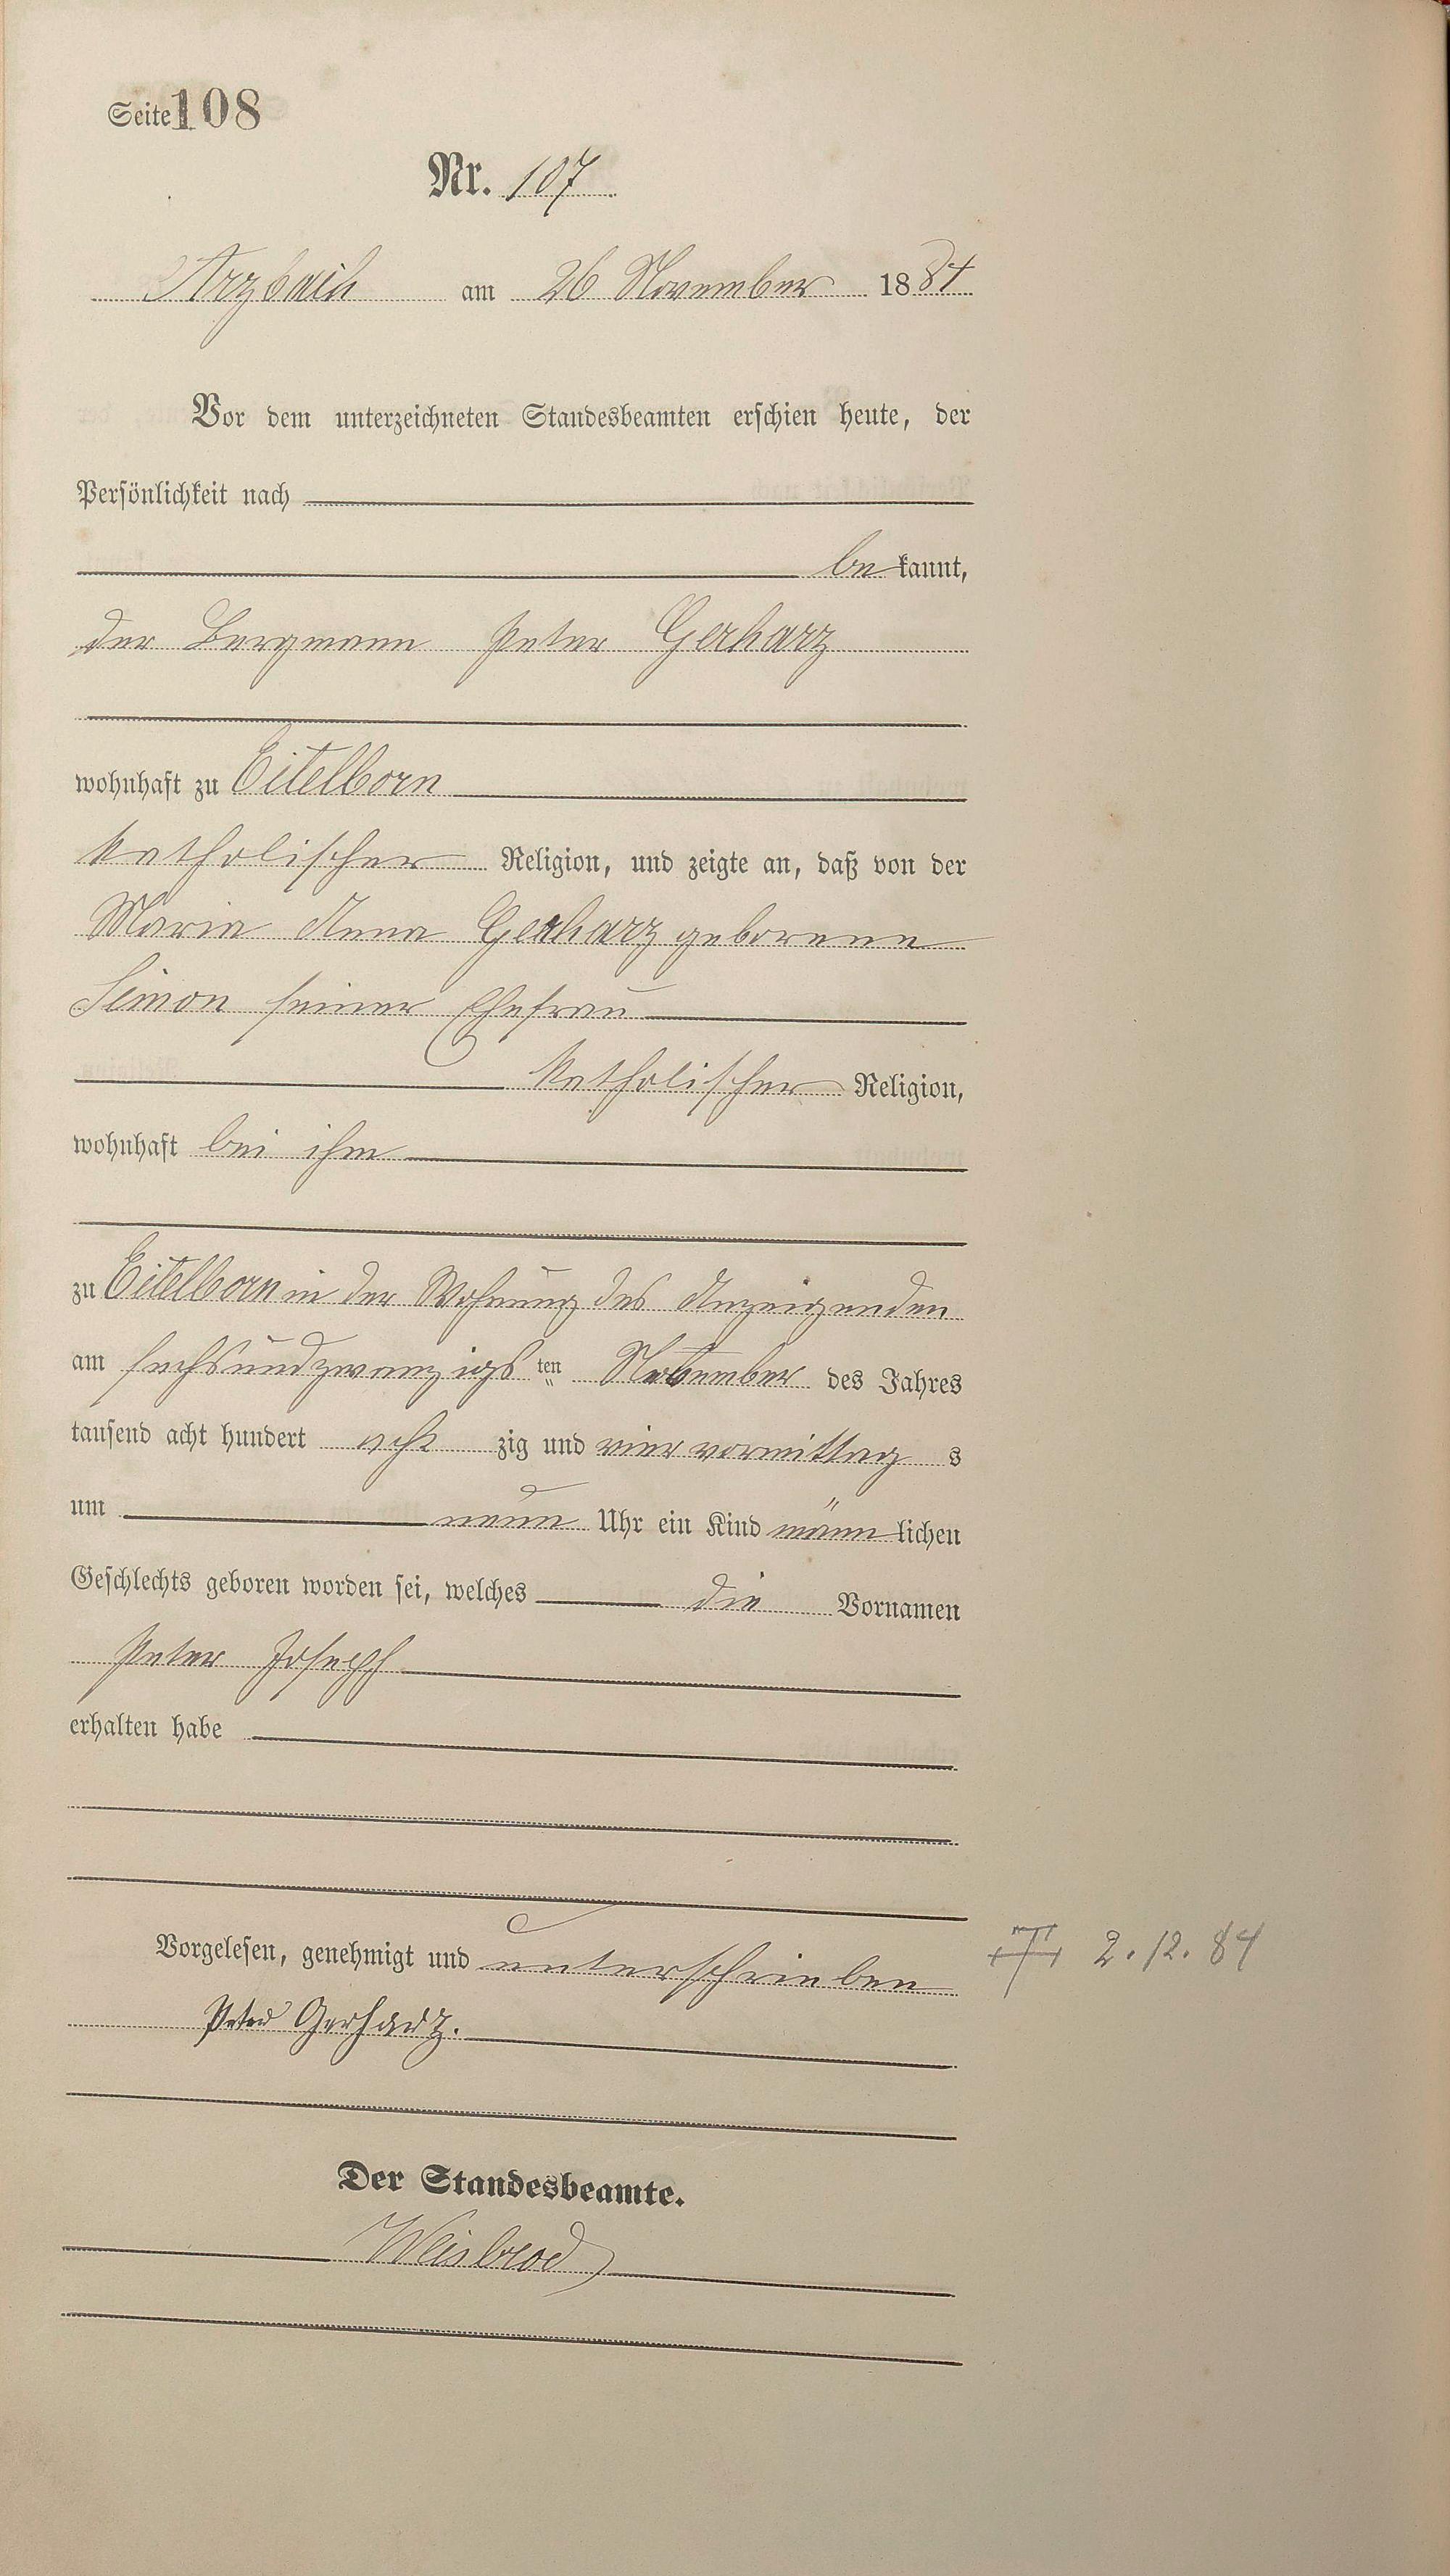 Seite 108
Nr. 107
Arzbach am 26 November 1884
Vor dem unterzeichneten Standesbeamten erschien heute, der
Persönlichkeit nach
bekannt,
der Bergmann Peter Gerharz
wohnhaft zu Eitelborn
katholischer Religion, und zeigte an, daß von der
Maria Anna Gerharz geborene
Simon seiner Ehefrau
katholischer Religion,
wohnhaft bei ihm
zu Eitelborn in der Wohnung des Anzeigenden
am sechsundzwanzigsten November des Jahres
tausend acht hundert achtzig und vier vormittags
um neun Uhr ein Kind männlichen
Geschlechts geboren worden sei, welches die Vornamen
Peter Joseph
erhalten habe
Vorgelesen, genehmigt und unterschrieben
2.12.84
Peter Gerharz.
Der Standesbeamte.
Weisbrod